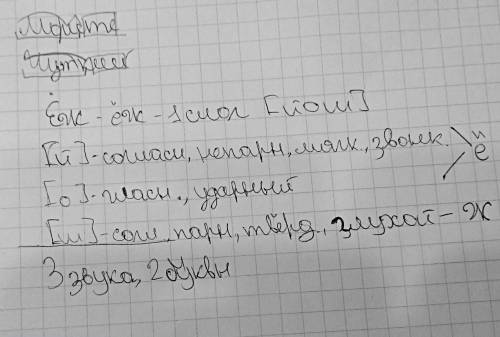 Ёж - ёж - 1 слог [йош]
[й] - согласн, непарн, мягк., звонк. й ё
[о] - гласн., ударный
[ш] - согл, парн, твёрд., глухой - ж
3 звука, 2 буквы